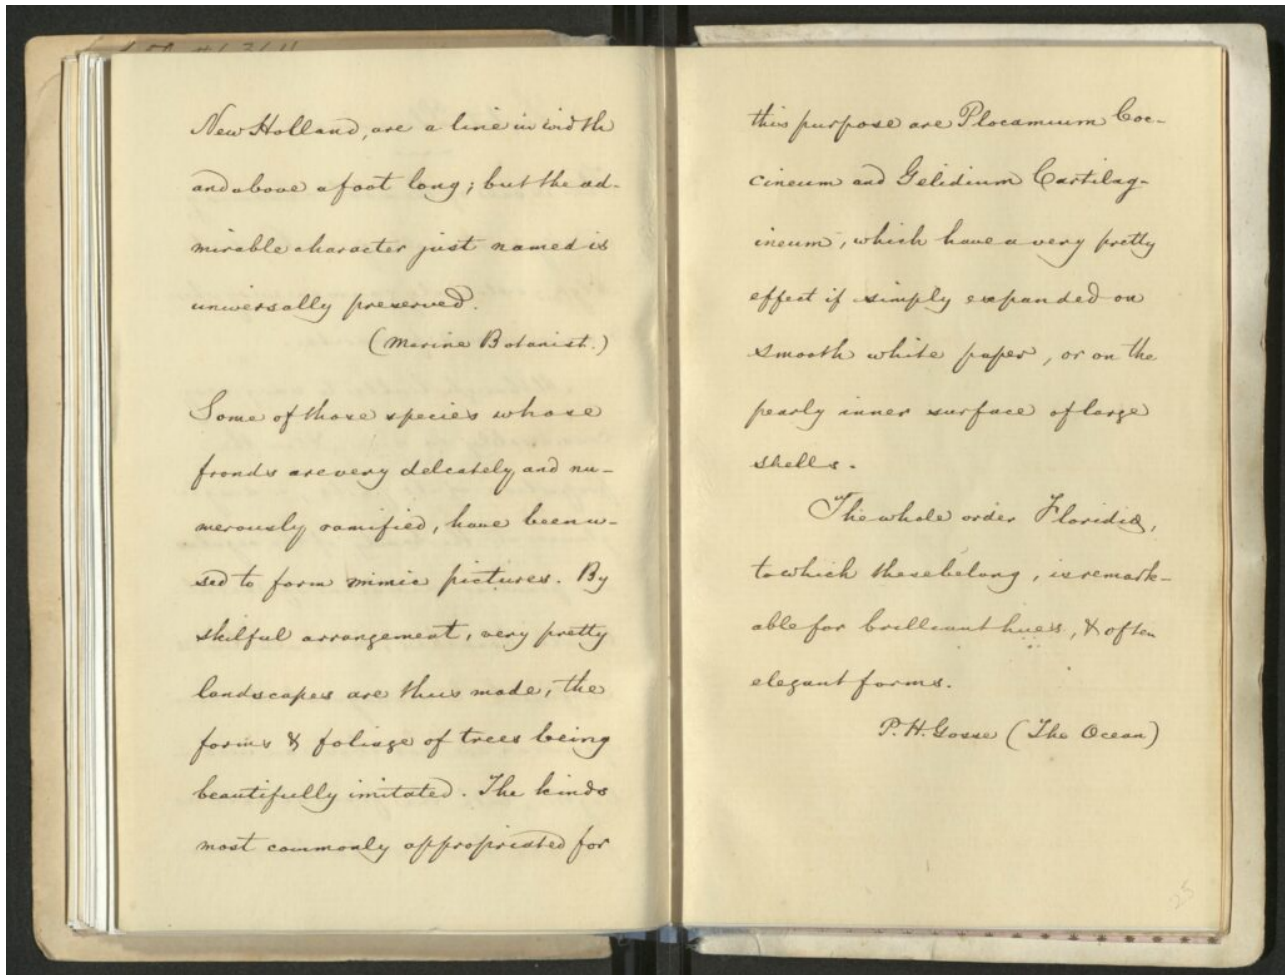 New Holland, are a line in width
and above a foot long; but the ad-
mirable character just named is
universally preserved.
(Marine Botanist.)
Some of those species whose
fronds are very delicately and nu-
merously ramified, have been u-
sed to form mimic pictures. By
skilful arrangement, very pretty
landscapes are thus made, the
forms & foliage of trees being
beautifully imitated. The kinds
most commonly appropriated for
this purpose are Plocamium Coc-
cineum and Gelidium Cartilag-
ineum, which have a very pretty
effect if simply expanded on
smooth white paper, or on the
pearly inner surface of large
shells.
The whole order Floridiæ,
to which these belong, is remark-
able for brilliant hues, & often
elegant forms.
P. H. Gosse (The Ocean)
25